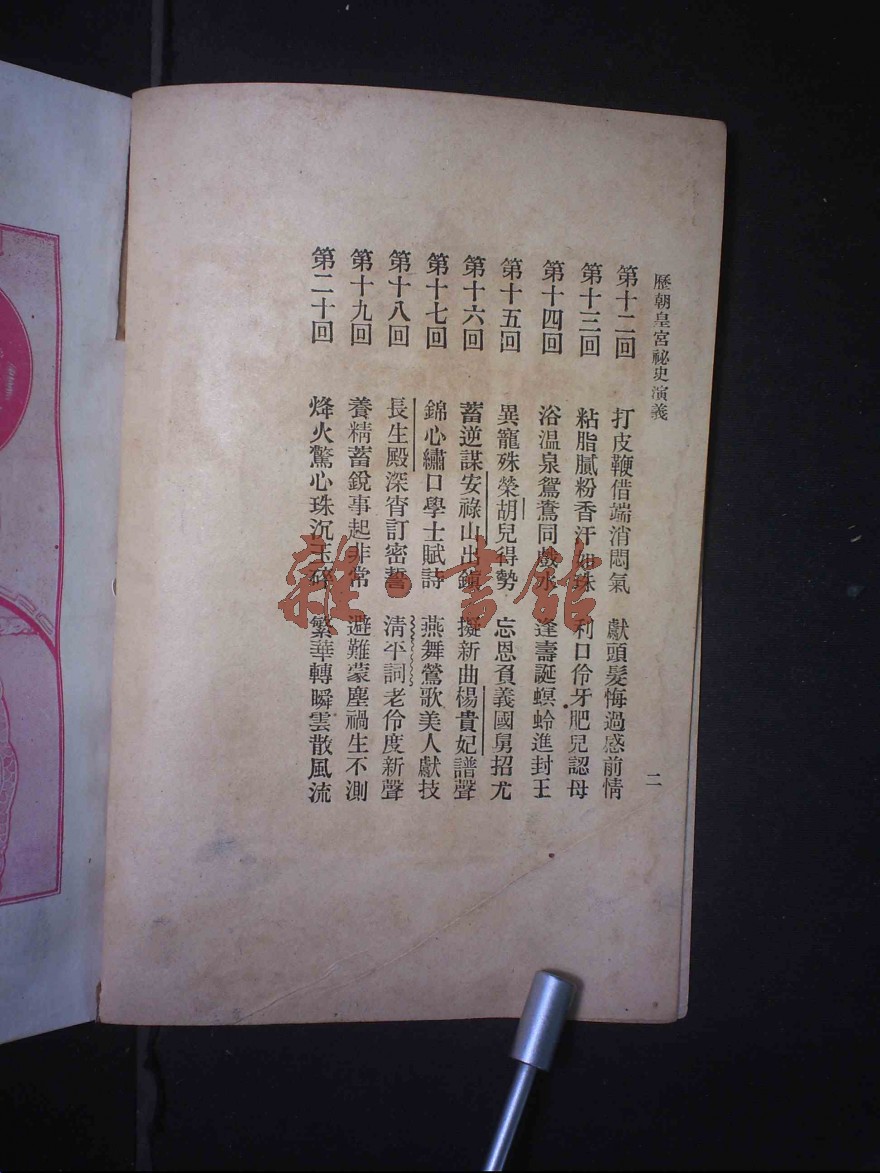 歷朝皇宮祕史演義 二
第十二回 打皮鞭借端消悶氣 獻頭髮悔過感前情
第十三回 粘脂膩粉香汗如珠 利口伶牙肥兒認母
第十四回 浴温泉鴛鴦同戲水 逢壽誕螟蛉進封王
第十五回 異寵殊榮胡兒得勢 忘恩負義國舅招尤
第十六回 蓄逆謀安祿山出鎮 擬新曲楊貴妃譜聲
第十七回 錦心繡口學士賦詩 燕舞鶯歌美人獻技
第十八回 長生殿深宵訂密誓 清平詞老伶度新聲
第十九回 養精蓄銳事起非常 避難蒙塵禍生不測
第二十回 烽火驚心珠沉玉碎 繁華轉瞬雲散風流
雜·書館